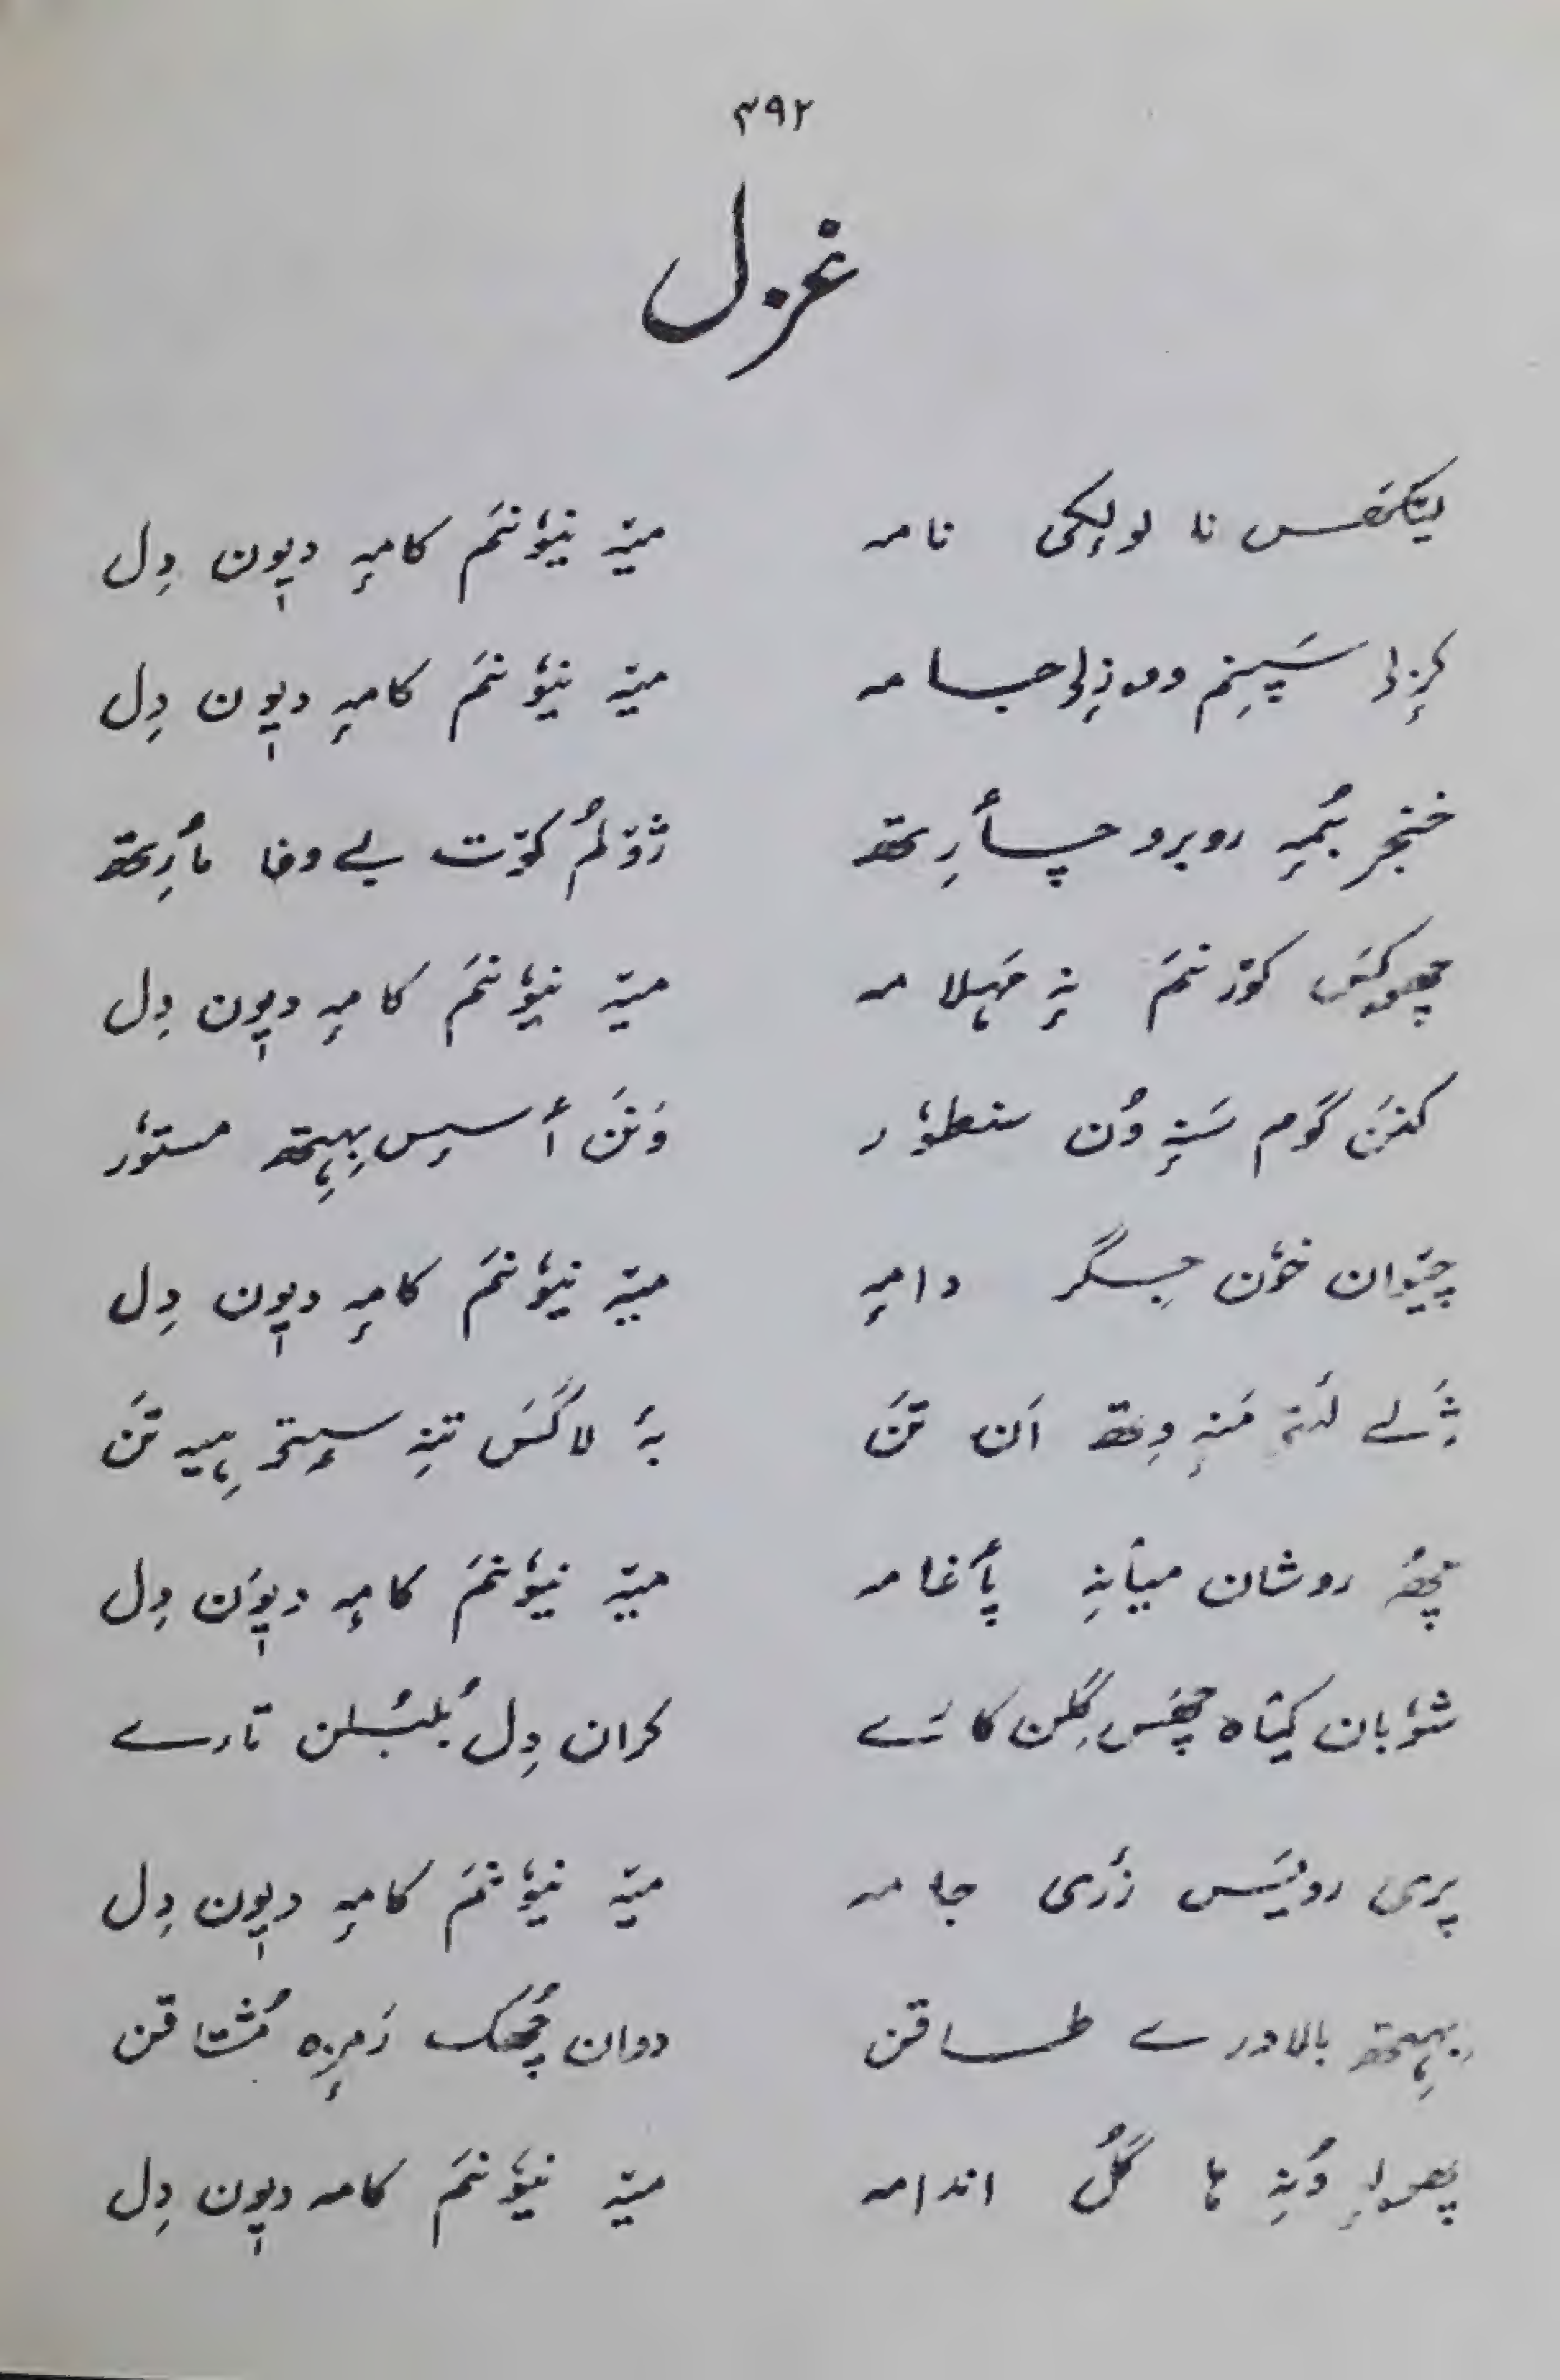 ۴۹۲
غزل
لیٚکھس نا لولٕکی نامہ مےٚ نیوٗنم کامہِ دیوٕن دِل
کرٕزِ سَپنِم وو زٕلی جامہ مےٚ نیوٗنم کامہِ دیوٕن دِل
خنجر بُمہِ روبرو چأرِتھ ژوٚلُم کوٚت بے وفا مأرِتھ
چھوکیَس کوٚرنم نہٕ مَہلامہ مےٚ نیوٗنم کامہِ دیوٕن دِل
کنَن گوم سَنہِ وُن سنطوٗر وَنَن أسِس بِہِتھ مستوٗر
چیَوان خوٗن جِگر دامہِ مےٚ نیوٗنم کامہِ دیوٕن دِل
ژٔلے لَتہِ مَنہِ وِتھ اَن تَن بہٕ لاگَس تنہِ سٟتۍ ہیہِ تَن
چھُ روشان میأنہِ پأغامہ مےٚ نیوٗنم کامہِ دیوٕن دِل
شوٗبان کیٛاہ چھَس گُلن کارَے کران دِل بُلبُلن تارے
پری رویَس زَری جامہ مےٚ نیوٗنم کامہِ دیوٕن دِل
بِہِتھ بالادرے طاقن دوان چُھکھ رَمزٕہ مُشتاقن
پھولہٕ وُنہِ ہا گُل اندامہ مےٚ نیوٗنم کامہ دیوٕن دِل